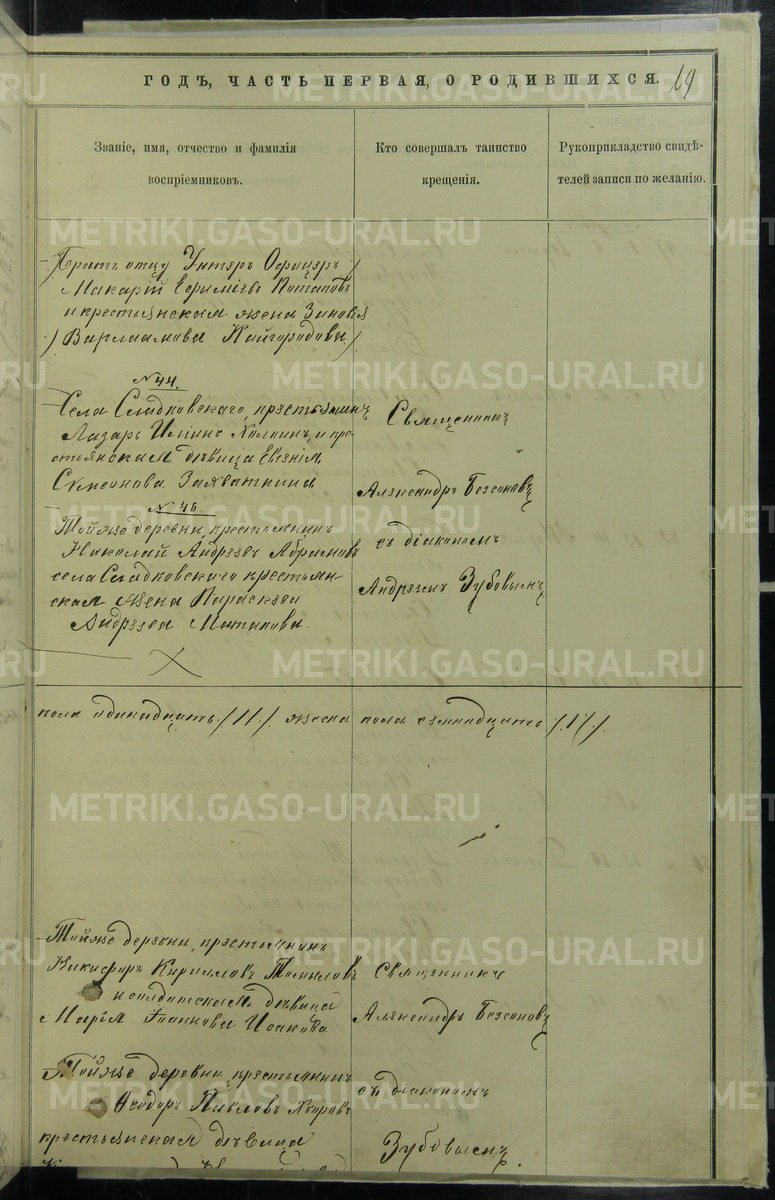 ГОДЪ, ЧАСТЬ ПЕРВАЯ, О РОДИВШИХСЯ.
19
Званіе, имя, отчество и фамилія
воспріемниковъ.
Кто совершалъ таинство
крещенія.
Рукоприкладство свидѣ-
телей записи по желанію.
Братъ отцу Унтеръ Офицеръ
Макарій Ефимовъ Потаповъ
и крестьянская жена Зиновія
Варлаамова Кайгородова
№ 44.
Села Сладковскаго, крестьянинъ
Лазарь Ильинъ и кре-
стьянская дѣвица Евгенія
Симеонова Захваткина
№ 45.
Тойже деревни, крестьянинъ
Николай Андреевъ Абрамовъ
села Сладковскаго крестьян-
ская жена Параскева
Андреева Потапова.
Священникъ
Александръ Безсоновъ
съ діакономъ
Андреемъ Зубовымъ
пола одинадцать /11/ женска пола семнадцать /17/.
Тойже деревни, крестьянинъ
Никифоръ Кирилловъ
и солдатская дѣвица
Марія Исакова
Священникъ
Александръ Безсоновъ
Тойже деревни, крестьянинъ
Ѳеодоръ Павловъ
крестьянская дѣвица
съ діакономъ
Зубовымъ.
METRIKI.GASO-URAL.RU